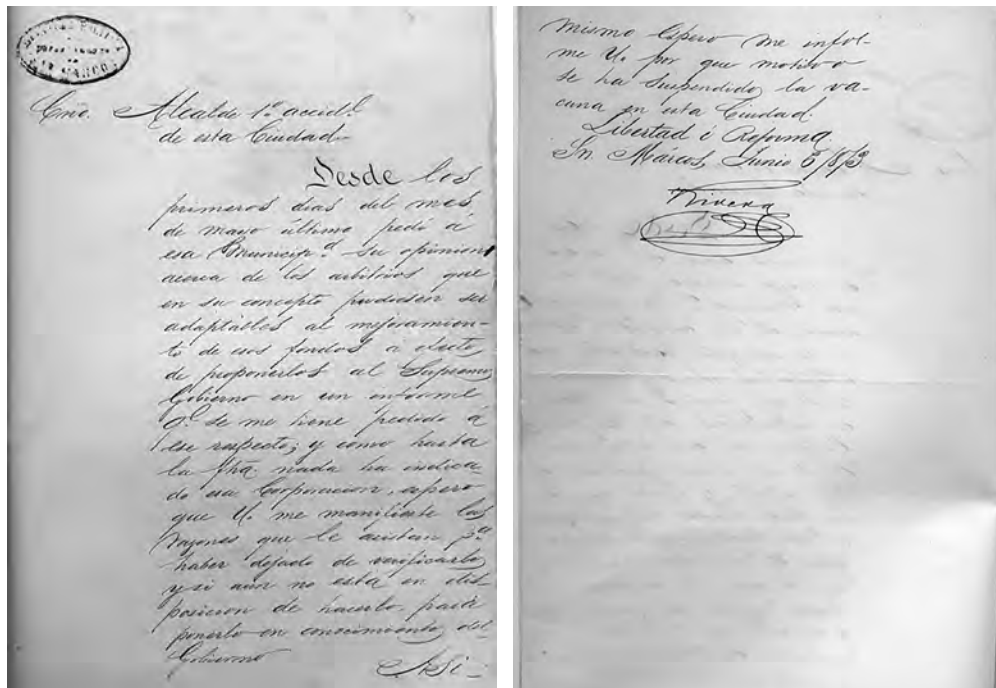 Cno. Alcalde 1º. accidl.
de esta Ciudad.
Desde los
primeros dias del mes
de mayo último pedí á
esa Municipd. su opinion
acerca de los arbitrios que
en su concepto pudiesen ser
adaptables al mejoramien-
to de esos fondos a efecto
de proponerlos al Supremo
Gobierno en un informe
q.e se me tiene pedido á
ese respecto; y como hasta
la fha. nada ha indica-
do esa Corporacion, espero
que U. me manifieste las
razones que le asisten pª
haber dejado de verificarlo
y si aun no está en dis-
posicion de hacerlo, para
ponerlo en conocimiento del
Gobierno
Asi-
mismo espero me infor-
me U. por que motivo
se ha suspendido la va-
cuna en esta Ciudad.
Libertad i Reforma
Sn. Márcos, Junio 5/873
Rivera